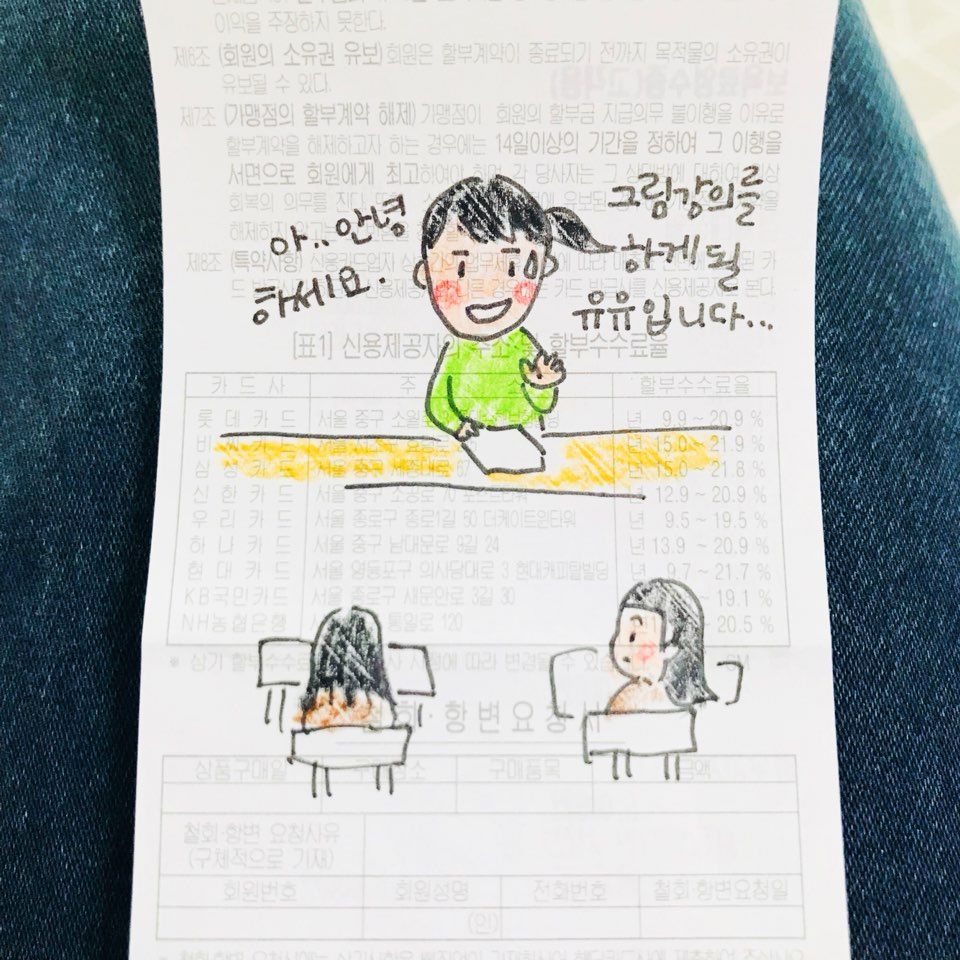 이익을 주장하지 못한다.
제6조 (회원의 소유권 유보) 회원은 할부계약이 종료되기 전까지 목적물의 소유권이
유보될 수 있다.
제7조 (가맹점의 할부계약 해제) 가맹점이 회원의 할부금 지급의무 불이행을 이유로
할부계약을 해제하고자 하는 경우에는 14일이상의 기간을 정하여 그 이행을
서면으로 회원에게 최고하여야
회복의 의무를 진다
제8조 (특약사항)
아.. 안녕
하세요.
그림강의를
하게 될
유유입니다...
[표1] 신용제공자의 주소 및 할부수수료율
카드사 주 소 할부수수료율
롯데카드 서울 중구 소월 년 9.9 ~ 20.9 %
비씨카드 년 15.0 ~ 21.9 %
삼성카드 서울 중구 세종대로 67 년 15.0 ~ 21.8 %
신한카드 서울 중구 소공로 70 년 12.9 ~ 20.9 %
우리카드 서울 종로구 종로1길 50 더케이트윈타워 년 9.5 ~ 19.5 %
하나카드 서울 중구 남대문로 9길 24 년 13.9 ~ 20.9 %
현대카드 서울 영등포구 의사당대로 3 현대캐피탈빌딩 년 9.7 ~ 21.7 %
KB국민카드 서울 종로구 새문안로 3길 30 ~ 19.1 %
NH농협은행 통일로 120 ~ 20.5 %
* 상기 할부수수료 따라 변경될 수 있습니다. SM
철회·항변요청서
상품구매일 구매품목 금액
철회·항변 요청사유
(구체적으로 기재)
회원번호 회원성명 전화번호 철회·항변요청일
(인)